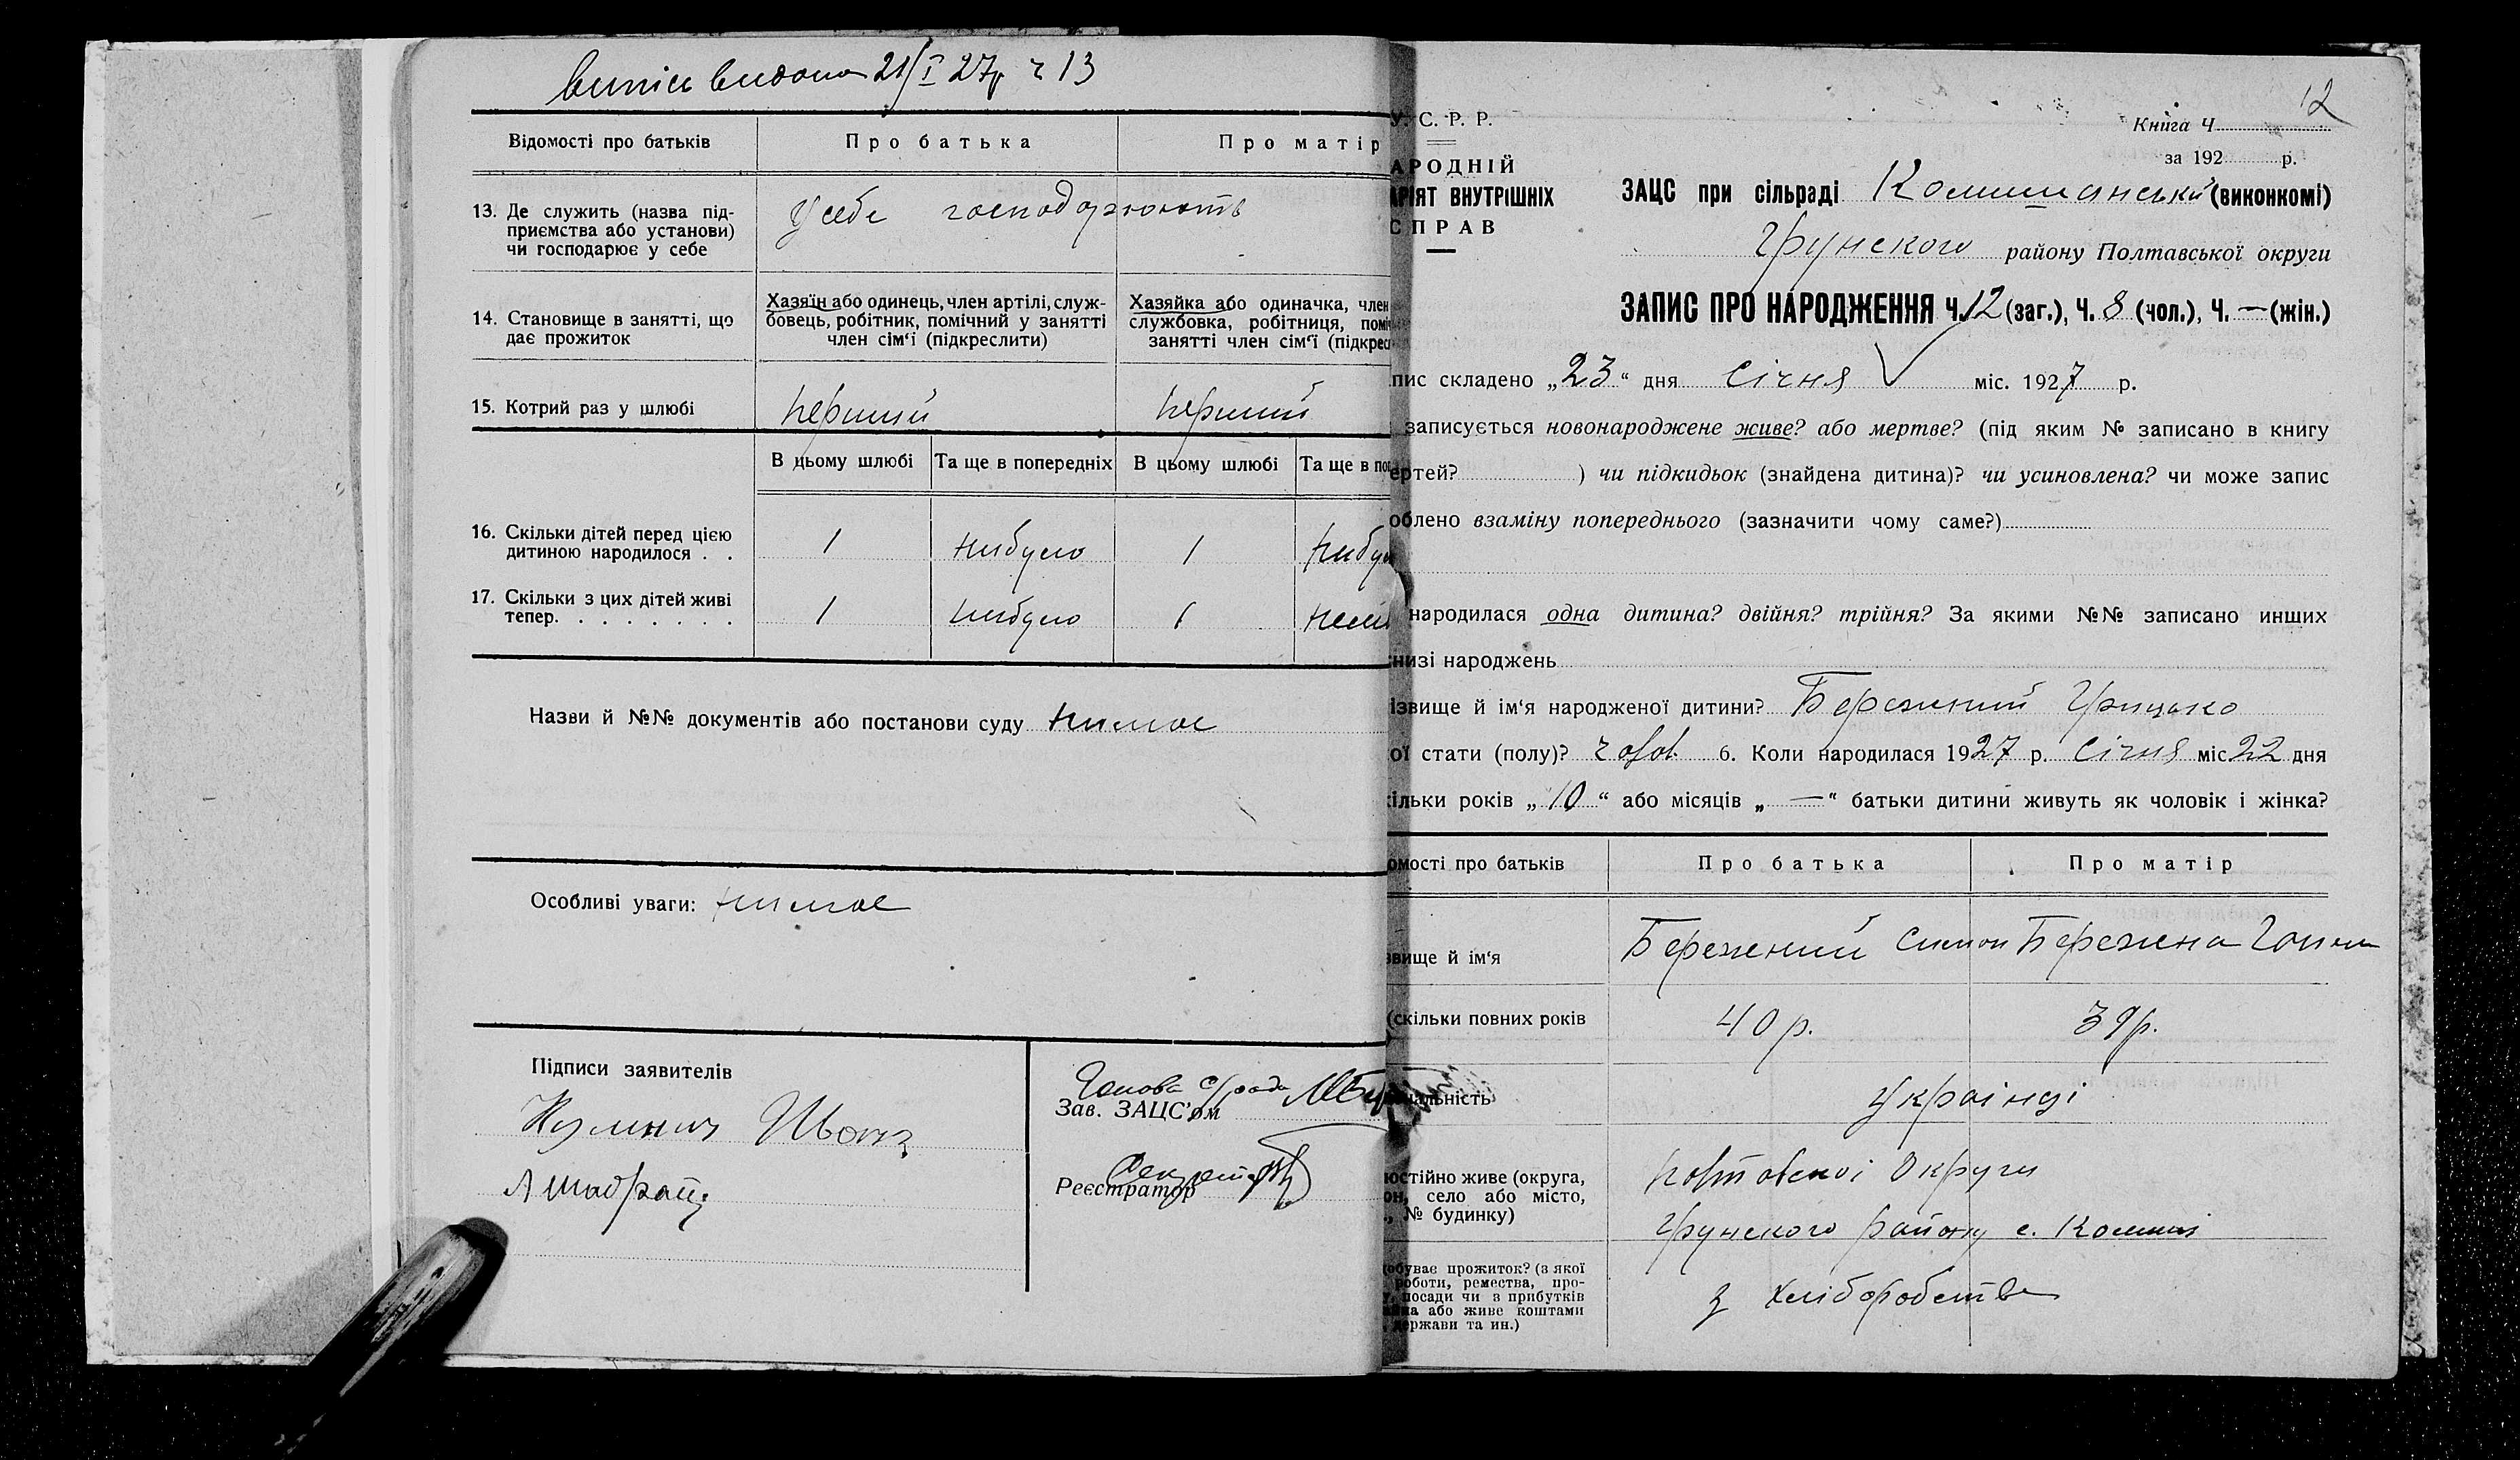 випись видана 21/I 27р ч 13
Відомості про батьків
Про батька
Про матір
13. Де служить (назва під-
приємства або установи)
чи господарює у себе
У себе господарюють
14. Становище в занятті, що
дає прожиток
Хазяїн або одинець, член артілі, служ-
бовець, робітник, помічний у занятті
член сім'ї (підкреслити)
Хазяйка або одиначка, член
службовка, робітниця, поміч
занятті член сім'ї (підкрес
15. Котрий раз у шлюбі
перший
перший
В цьому шлюбі
Та ще в попередніх
В цьому шлюбі
Та ще в по
16. Скільки дітей перед цією
дитиною народилося . .
1
нибуло
1
нибул
17. Скільки з цих дітей живі
тепер. . . . . . . .
1
нибуло
1
Назви й №№ документів або постанови суду нимає
Особливі уваги: нимає
Підписи заявителів
Голова с/ради
Зав. ЗАЦС'ом
Секретар
Реєстратор
12
У. С. Р. Р.
АРОДНІЙ
АРІЯТ ВНУТРІШНІХ
СПРАВ
Книга Ч
за 192 р.
ЗАЦС при сільраді Комишанській (виконкомі)
Грунского району Полтавської округи
ЗАПИС ПРО НАРОДЖЕННЯ Ч. 12 (заг.), Ч. 8 (чол.), Ч. — (жін.)
пис складено „23" дня Січня міс. 1927 р.
записується новонароджене живе? або мертве? (під яким № записано в книгу
ертей? ) чи підкидьок (знайдена дитина)? чи усиновлена? чи може запис
облено взаміну попереднього (зазначити чому саме?)
народилася одна дитина? двійня? трійня? За якими №№ записано инших
низі народжень
ізвище й ім'я народженої дитини? Бережний Грицько
ої стати (полу)? чолов. 6. Коли народилася 1927 р. Січня міс 22 дня
ільки років „10" або місяців „—" батьки дитини живуть як чоловік і жінка?
омості про батьків
Про батька
Про матір
звище й ім'я
Бережений Симон
Бережена
(скільки повних років
40 р.
39 р.
нальність
Українці
остійно живе (округа,
он, село або місто,
., № будинку)
Полтавскої Округи
Грунского району с. Комиші
обуває прожиток? (з якої
роботи, ремества, про-
, посади чи з прибутків
айна або живе коштами
держави та ин.)
З хліборобства